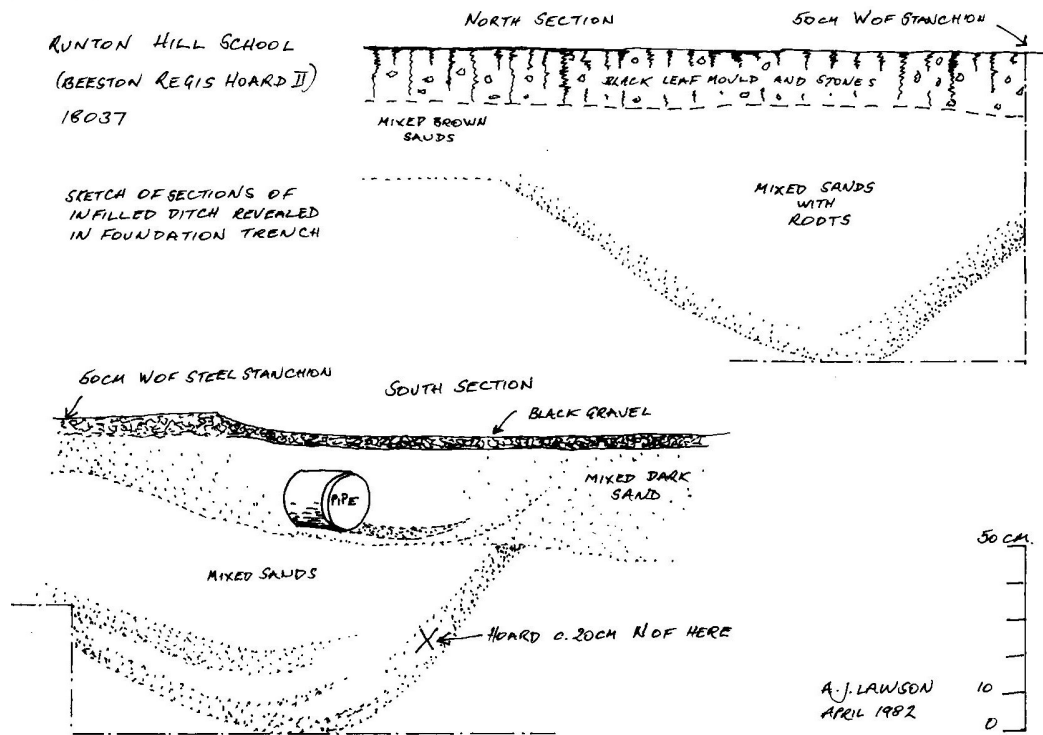 RUNTON HILL SCHOOL
(BEESTON REGIS HOARD II)
18037
SKETCH OF SECTIONS OF
INFILLED DITCH REVEALED
IN FOUNDATION TRENCH
NORTH SECTION
50CM W OF STANCHION
BLACK LEAF MOULD AND STONES
MIXED BROWN
SANDS
MIXED SANDS
WITH
ROOTS
50CM W OF STEEL STANCHION
SOUTH SECTION
BLACK GRAVEL
PIPE
MIXED DARK
SAND
MIXED SANDS
X HOARD c. 20CM N OF HERE
50 CM.
10
0
A.J. LAWSON
APRIL 1982